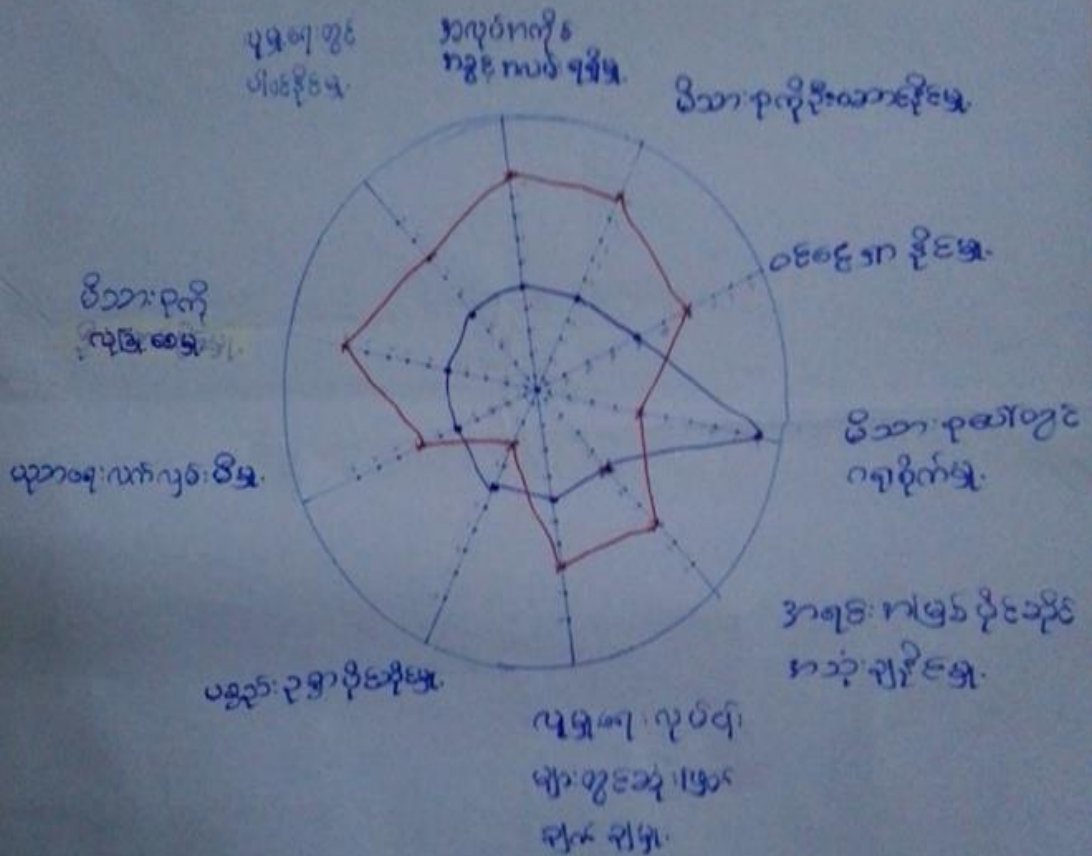 လူမှုရေးတွင်
ပါဝင်နိုင်မှု
အလုပ်အကိုင်
အခွင့်အလမ်းရရှိမှု
မိသားစုကိုဦးဆောင်နိုင်မှု
ဝင်ငွေရှာနိုင်မှု
မိသားစုပေါ်တွင်
ဂရုစိုက်မှု
အရင်းအမြစ်ပိုင်ဆိုင်
အသုံးချနိုင်မှု
လူမှုရေးလုပ်ငန်း
များတွင်ဆုံးဖြတ်
ချက်ချမှု
ပစ္စည်းဥစ္စာပိုင်ဆိုင်မှု
ပညာရေးလက်လှမ်းမီမှု
မိသားစုကို
လုံခြုံစေမှု